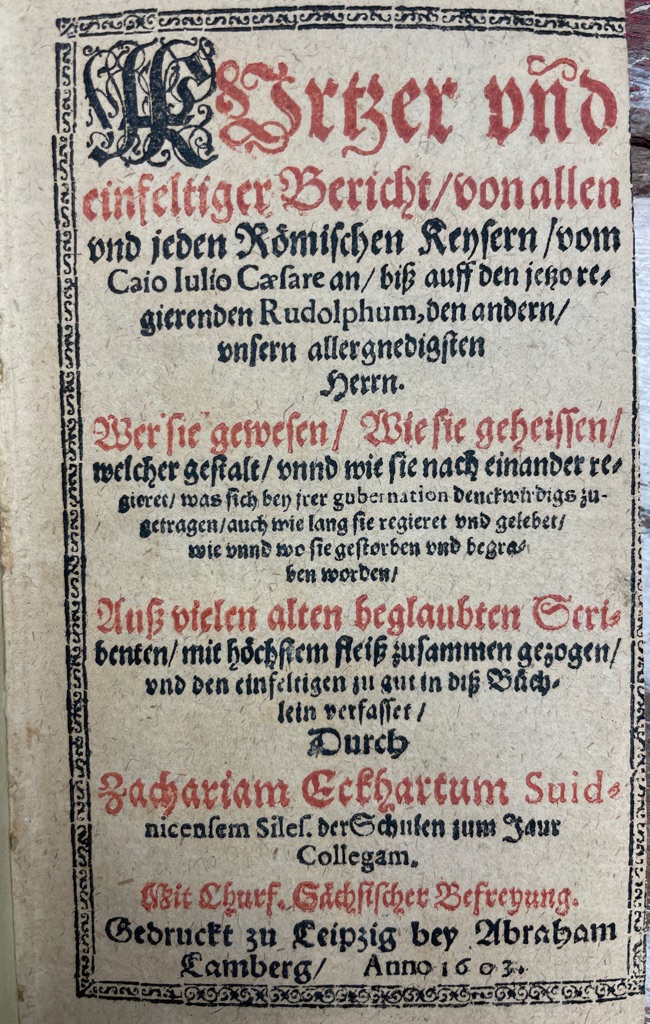 KUrtzer vñd
einfeltiger Bericht/von allen
vnd jeden Römischen Keysern/vom
Caio Iulio Cæsare an/ biß auff den jetzo re-
gierenden Rudolphum, den andern/
vnsern allergnedigsten
Herrn.
Wer sie gewesen/ Wie sie geheissen/
welcher gestalt/ vnnd wie sie nach einander re-
gieret/ was sich bey jrer gubernation denckwirdigs zu-
getragen/auch wie lang sie regieret vnd gelebet/
wie vnnd wo sie gestorben vnd begra-
ben worden/
Auß vielen alten beglaubten Scri-
benten/ mit höchstem fleiß zusammen gezogen/
vnd den einfeltigen zu gut in diß Büch-
lein verfasset/
Durch
Zachariam Eckhartum Suid-
nicensem Siles. der Schulen zum Jaur
Collegam.
Mit Churf. Sächsischer Befreyung.
Gedruckt zu Leipzig bey Abraham
Lamberg/ Anno 1603.